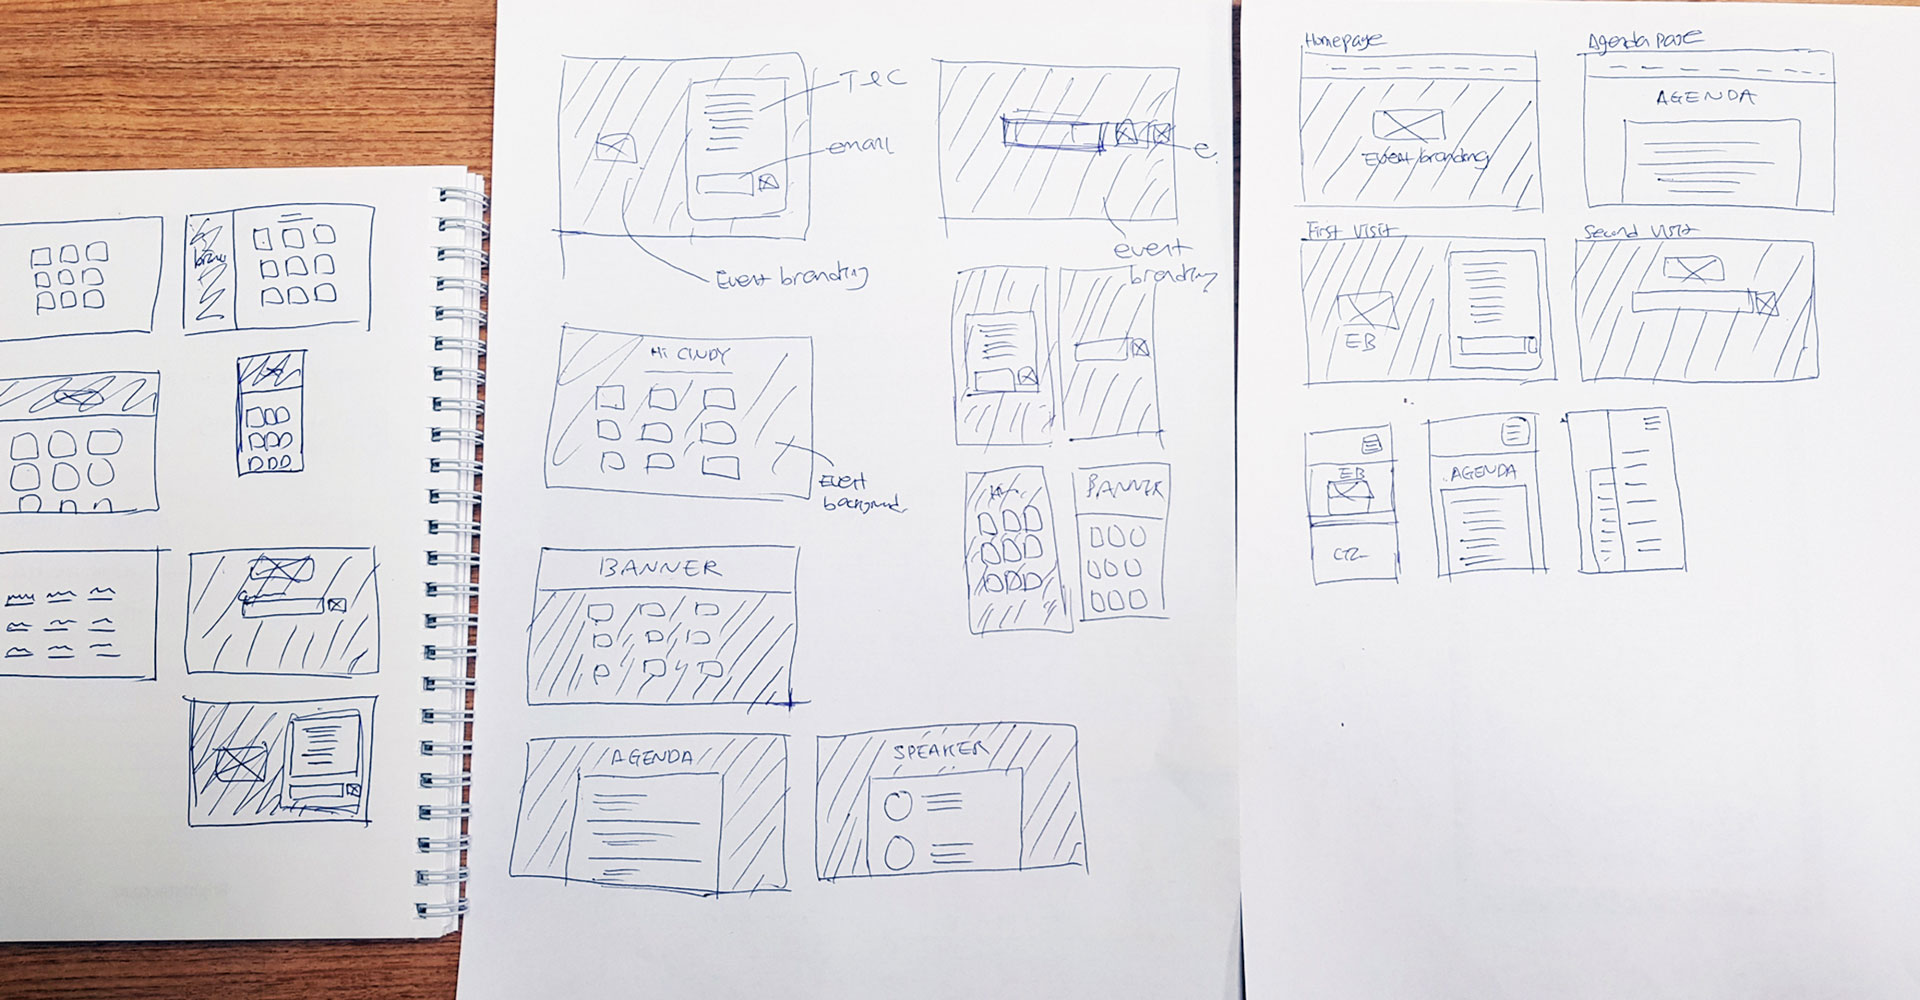 T&C
email
Event branding
event
branding
Hi CINDY
Event
backgroud
BANNER
BANNER
AGENDA
SPEAKER
Homepage
Event branding
Agenda page
AGENDA
First visit
EB
Second visit
EB
AGENDA